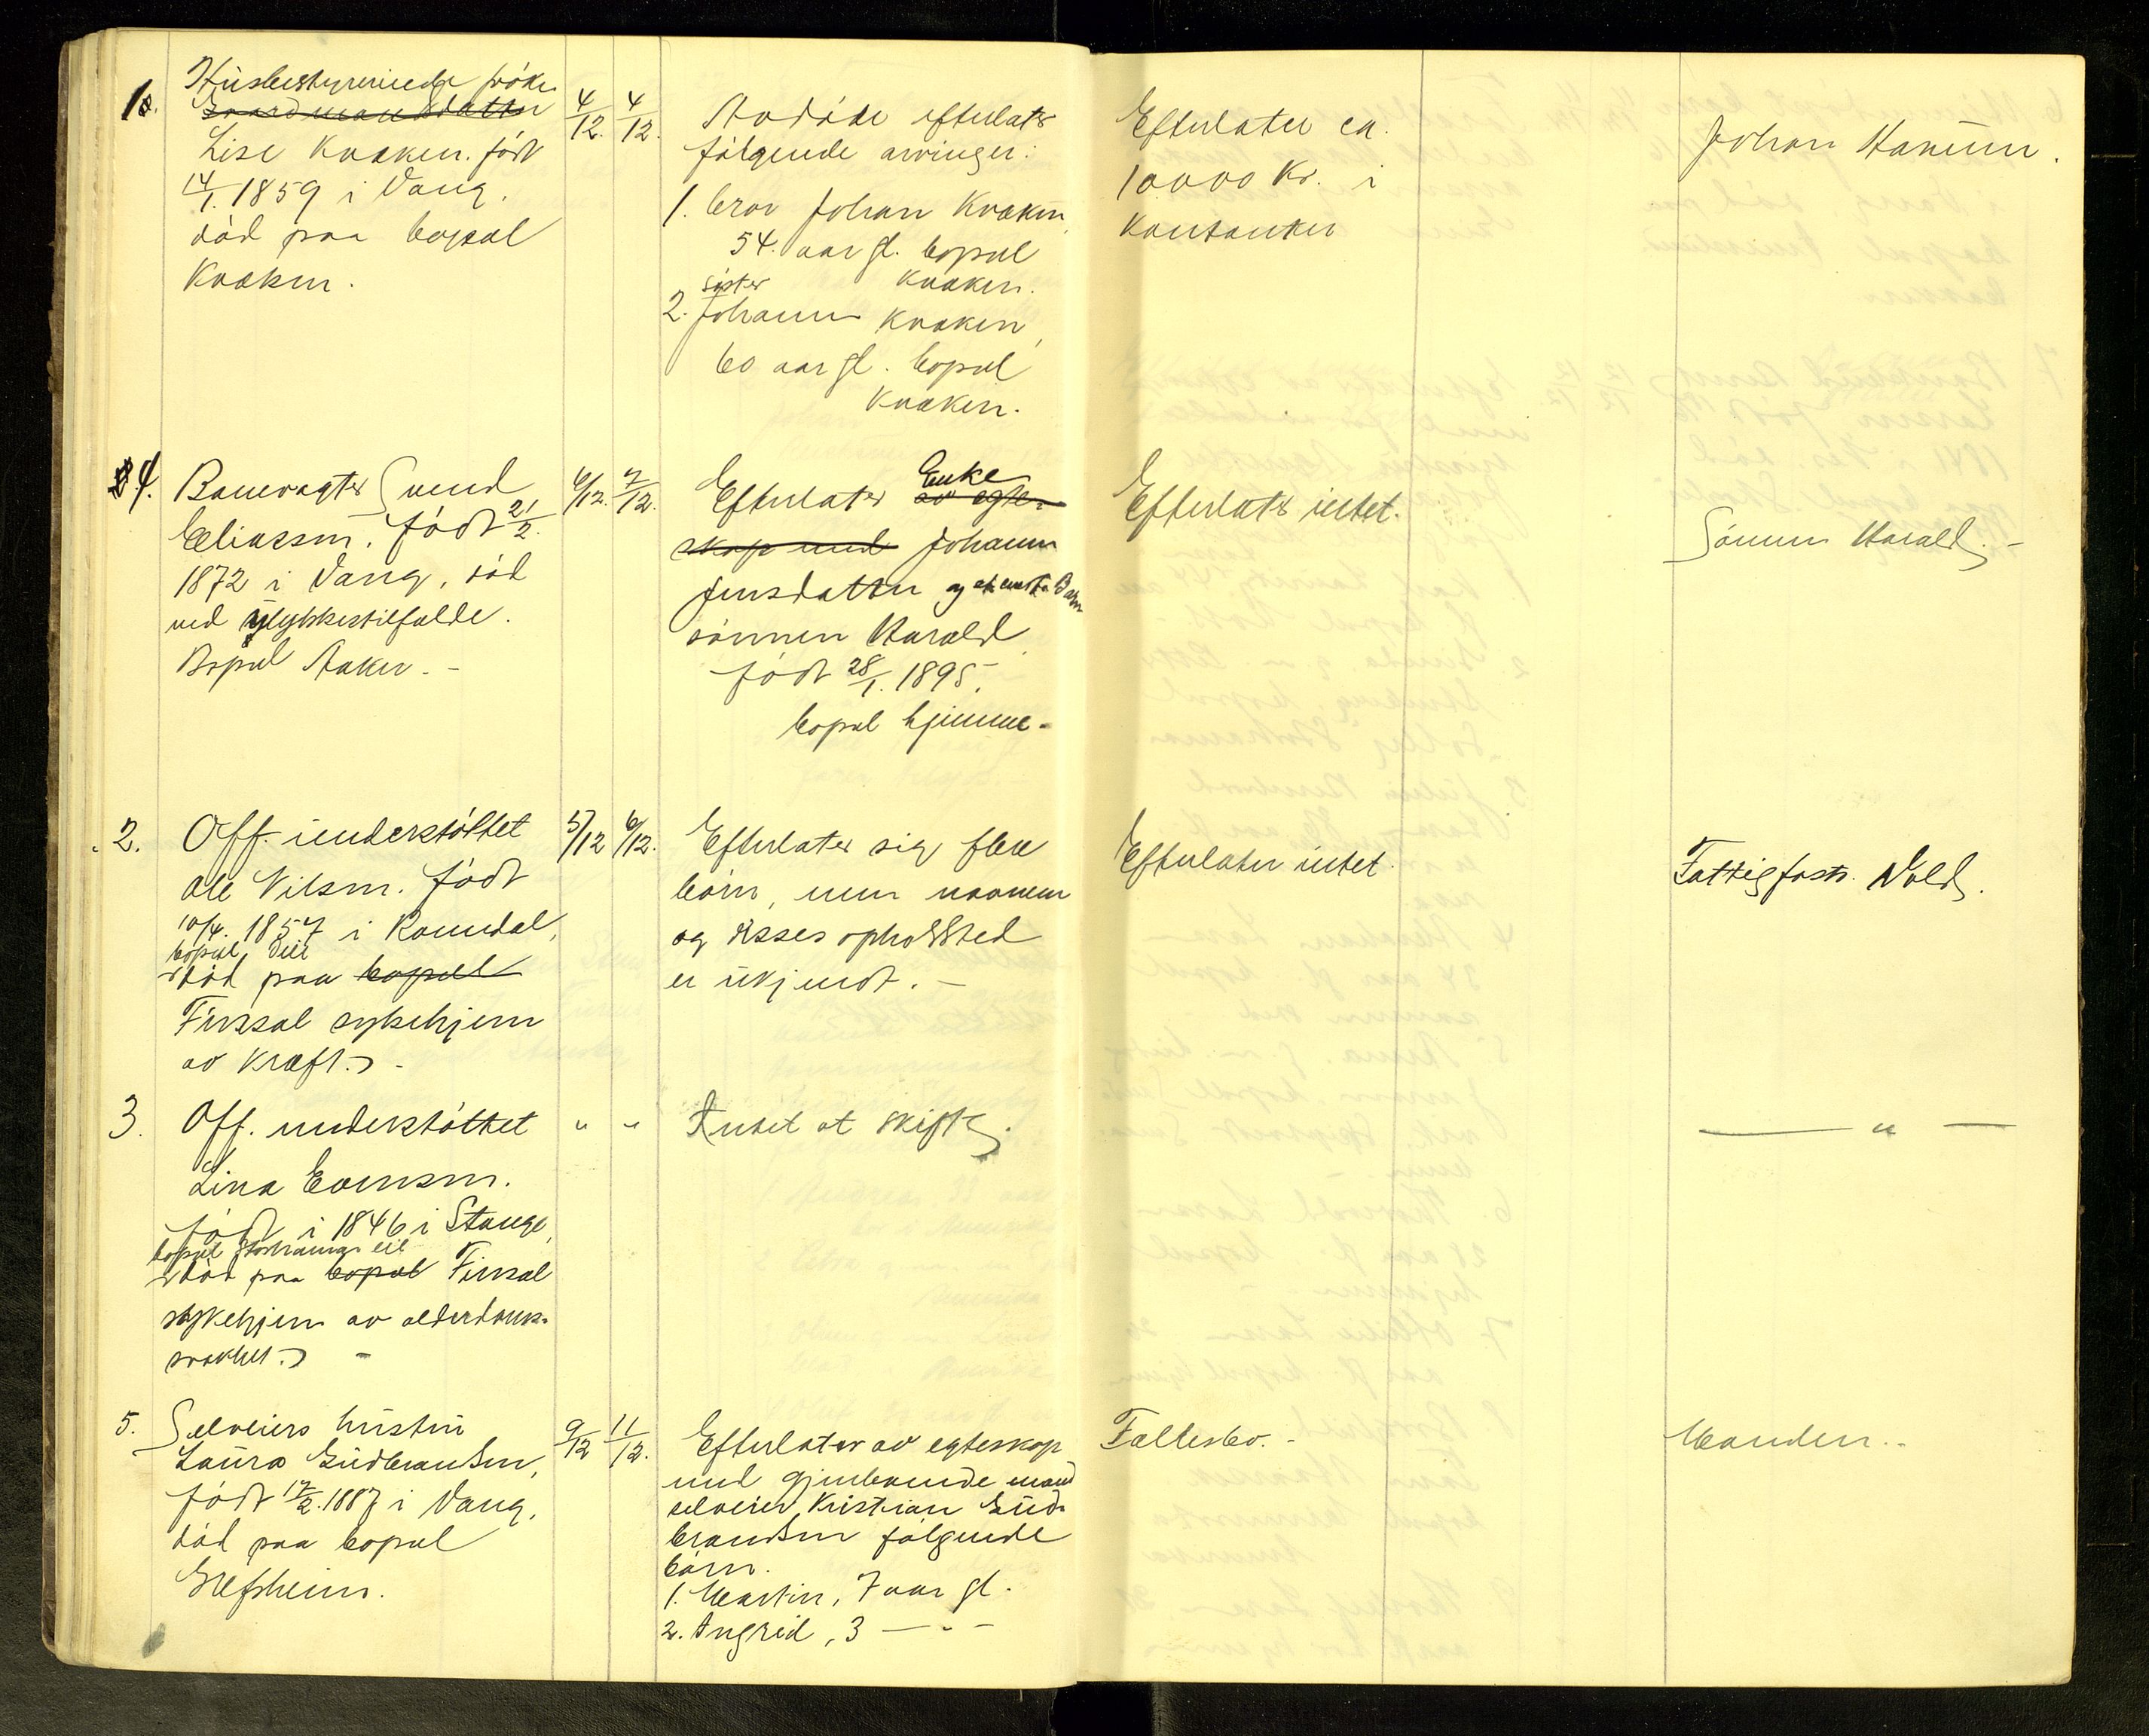 1.
Husbestyrerinde fröken
Gaardmandsdatter
Lise Kraaken. född
14/1. 1859 i Vang,
död paa bopæl
Kraaken.
4/12. 4/12.
Avdöde efterlater
fölgende arvinger:
1. bror Johan Kraaken,
54. aar gl. bopæl
Kraaken.
söster
2. Johanne Kraaken,
60 aar gl. bopæl
Kraaken.
Efterlater ca.
10000 Kr. i
kontanter
Johan
4. Banevagter Svend
Eliassen. födt 21/2.
1872 i Vang, död
ved ulykkestilfælde.
Bopæl Aaker. -
6/12. 7/12.
Enke
Efterlater av egte-
skap med Johanne
Jensdatter og et eneste Barn
sönnen Harald
födt 28/1. 1895,
bopæl hjemme -
Efterlater intet.
Sönnen Harald. -
2. Off. understöttet
Ole Nilsen. födt
10/4. 1857 i Romedal,
bopæl
död paa bopæl
Finsal sykehjem
av kræft. -
5/12 6/12.
Efterlater sig flere
börn, men navnene
og disses opholdsted
er ukjendt. -
Efterlater intet.
Fattigforst. Vold.
3. Off. understöttet
Lina Evensen.
födt i 1846 i Stange,
bopæl
död paa bopæl Finsal
sykehjem av alderdoms-
svakhet. -
" "
Intet at skifte.
— " —
5. Selveiers hustru
Laura Gudbrandsen,
födt 17/2. 1887 i Vang,
död paa bopæl
Hefsheim.
9/12 11/12.
Efterlater av egteskap
med gjenlevende mand
selveier Kristian Gud-
brandsen fölgende
börn.
1. Martin, 7 aar gl.
2. Ingrid, 3 — " -
Fællesbo. -
Manden. -